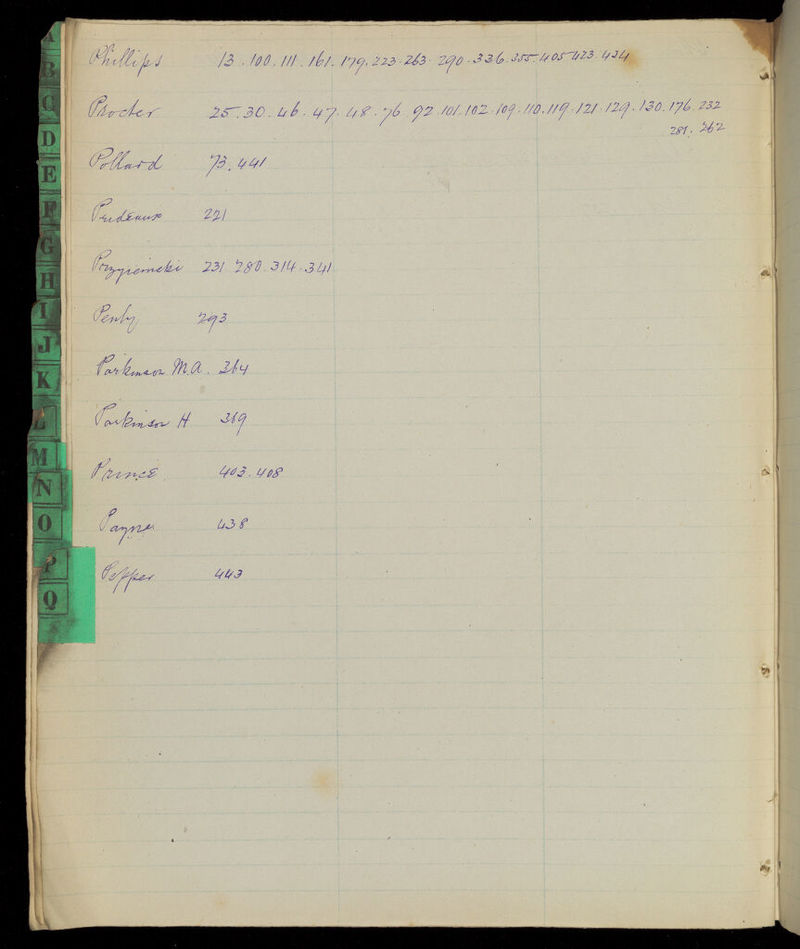 A
B
C
D
E
F
G
H
I
J
K
L
M
N
O
P
Q
Phillips 13 . 100 . 111 . 161 . 179 . 223 . 263 . 290 . 336 . 355 . 405 . 423 . 434
Procter 25 . 30 . 46 . 47 . 48 . 76 . 92 . 101 . 102 . 109 . 110 . 119 . 121 . 129 . 130 . 176 . 232
281 . 262
Pollard 73 . 441
Prideaux 221
Przygiemski 231 . 280 . 314 . 341
Penty 293
Parkinson M.A. 364
Parkinson H 369
Prince 403 . 408
Payne 438
Pepper 443